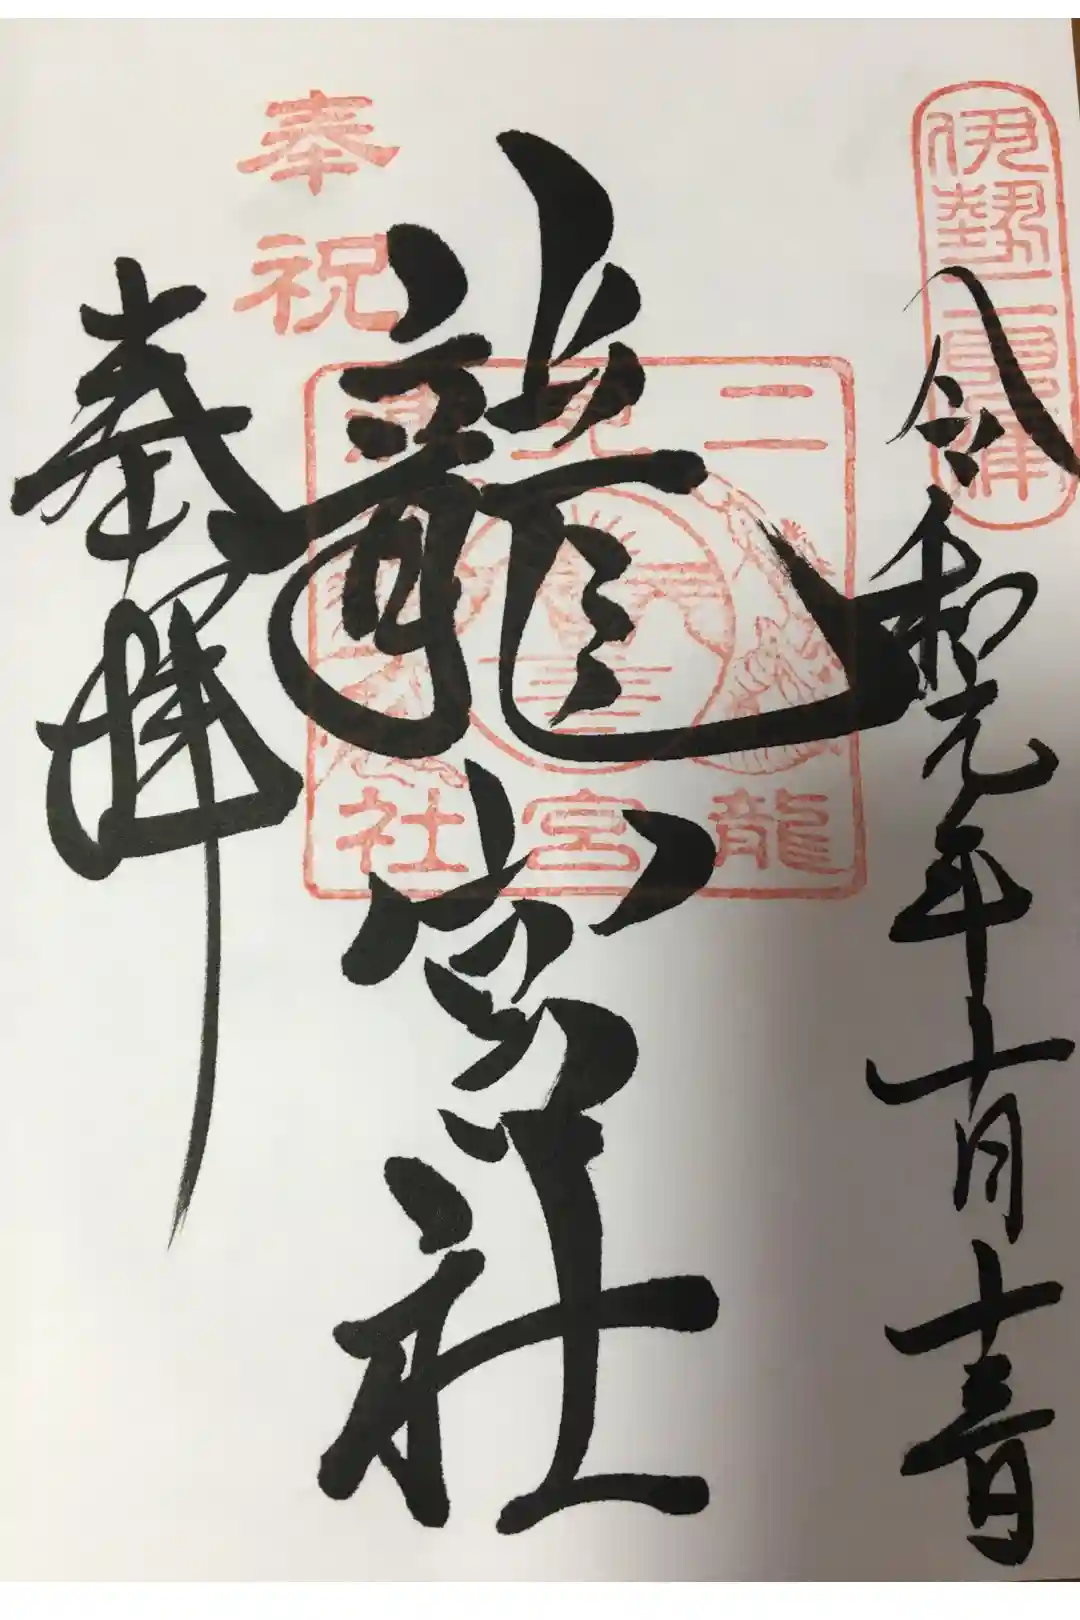 伊勢二見浦
令和元年十月十三日
奉祝
二見浦
龍宮社
龍宮社
奉拝